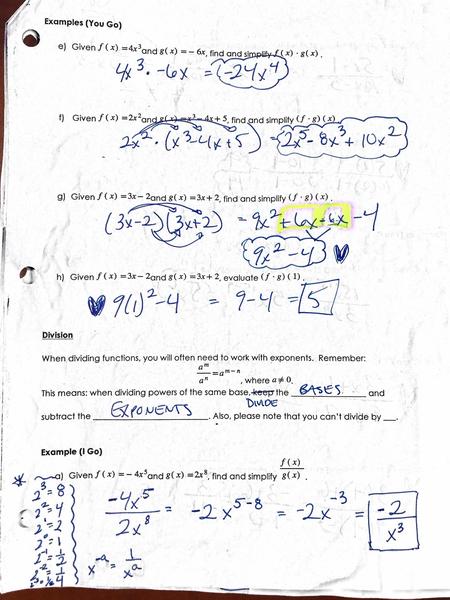 Examples (You Go)
e) Given f(x)=4x³ and g(x)=−6x, find and simplify f(x)·g(x).
4x³ · -6x = -24x⁴
f) Given f(x)=2x² and g(x)=x³−4x+5, find and simplify (f·g)(x)
2x² · (x³-4x+5) = 2x⁵-8x³+10x²
g) Given f(x)=3x−2 and g(x)=3x+2, find and simplify (f·g)(x).
(3x-2)(3x+2) = 9x²+6x-6x-4
9x²-4 ♥
h) Given f(x)=3x−2 and g(x)=3x+2, evaluate (f·g)(1).
♥ 9(1)²-4 = 9-4 = 5
Division
When dividing functions, you will often need to work with exponents. Remember:
aᵐ/aⁿ = aᵐ⁻ⁿ, where a≠0.
This means: when dividing powers of the same base, keep the BASES and
DIVIDE
subtract the EXPONENTS. Also, please note that you can't divide by __.
Example (I Go)
a) Given f(x)=−4x⁵ and g(x)=2x⁸, find and simplify f(x)/g(x).
-4x⁵/2x⁸ = -2x⁵⁻⁸ = -2x⁻³ = -2/x³
2³=8
2²=4
2¹=2
2⁰=1
2⁻¹=1/2
2⁻²=1/4
x⁻ᵃ = 1/xᵃ